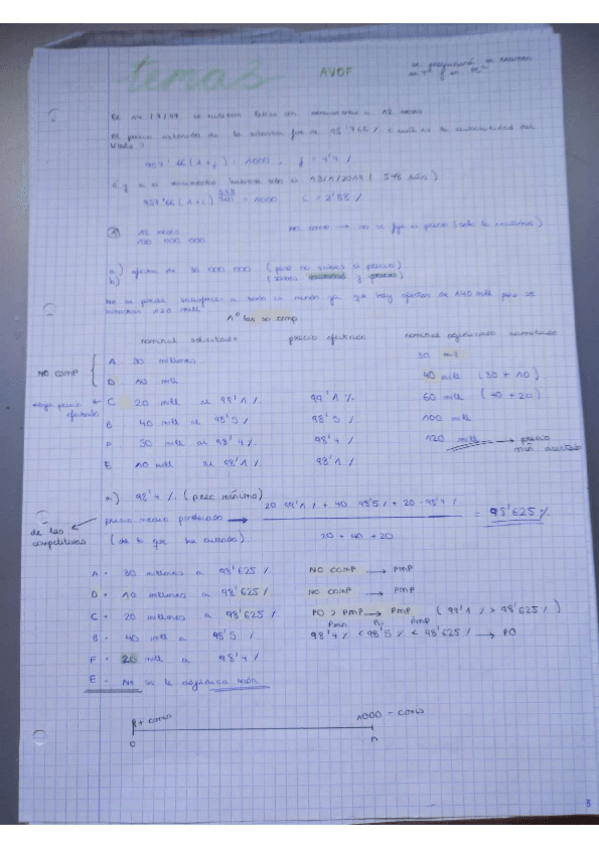 temas
AVOF
se preguntará en examen
El 14/7/17 se emiten letras con vencimiento a 12 meses
El precio obtenido de la subasta fue de 95'766% ¿cuál es la rentabilidad del
título?
957'66(1+j) = 1000, j = 4'4%
¿y si el vencimiento hubiera sido el 13/1/2019 (548 días)
957'66(1+i) = 1000 i = 2'88%
12 meses
120 000 000
no comp → no se fija el precio (solo la cantidad)
a) oferta de 30 000 000 (pero no sabemos el precio)
b)
No se puede satisfacer a todo el mundo ya que hay ofertas de 140 mill pero se
120 mill
1º las no comp
nominal solicitado precio ofertado nominal adjudicado acumulado
NO COMP
A 30 millones 30 mill
D 10 mill 40 mill (30 + 10)
mayor precio ofertado ← C 20 mill al 99'1% 99'1% 60 mill (40 + 20)
B 40 mill al 98'5% 98'5% 100 mill
F 30 mill al 98'4% 98'4% 120 mill → precio mín aceptado
E 10 mill al 98'1% 98'1%
a) 98'4% (prec mínimo)
de las competitivas ← precio medio ponderado → 20·99'1% + 40·98'5% + 20·98'4% = 98'625%
(de lo que) 20 + 40 + 20
A - 30 millones a 98'625% NO COMP → PMP
D - 10 millones a 98'625% NO COMP → PMP
C - 20 millones a 98'625% PO > PMP → PMP (99'1% > 98'625%)
Pmin Po PMP
B - 40 mill a 98'5% 98'4% < 98'5% < 98'625% → PO
F - 20 mill a 98'4%
E - No se le adjudica nada
P + comis 1000 - comis
0 n